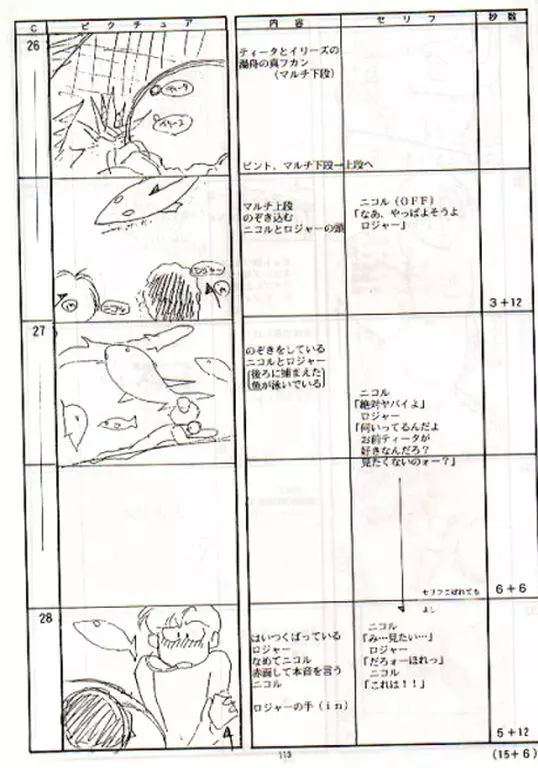 C
ピクチュア
内容
セリフ
秒数
26
ティータとイリーズの
湯舟の真フカン
(マルチ下段)
ティータ
イリーズ
ピント、マルチ下段→上段へ
マルチ上段
のぞき込む
ニコルとロジャーの頭
ニコル(OFF)
「なあ、やっぱよそうよ
ロジャー」
ロジャー
ニコル
in
in
3+12
27
のぞきをしている
ニコルとロジャー
(後ろに捕まえた
魚が泳いでいる)
ニコル
「絶対ヤバイよ」
ロジャー
「何いってるんだよ
お前ティータが
好きなんだろ?
見たくないのォー?」
セリフこぼれても
よし
6+6
28
はいつくばっている
ロジャー
なめてニコル
赤面して本音を言う
ニコル
ロジャーの手(in)
ニコル
「み…見たい…」
ロジャー
「だろォーほれっ」
ニコル
「これは!!」
5+12
113
(15+6)